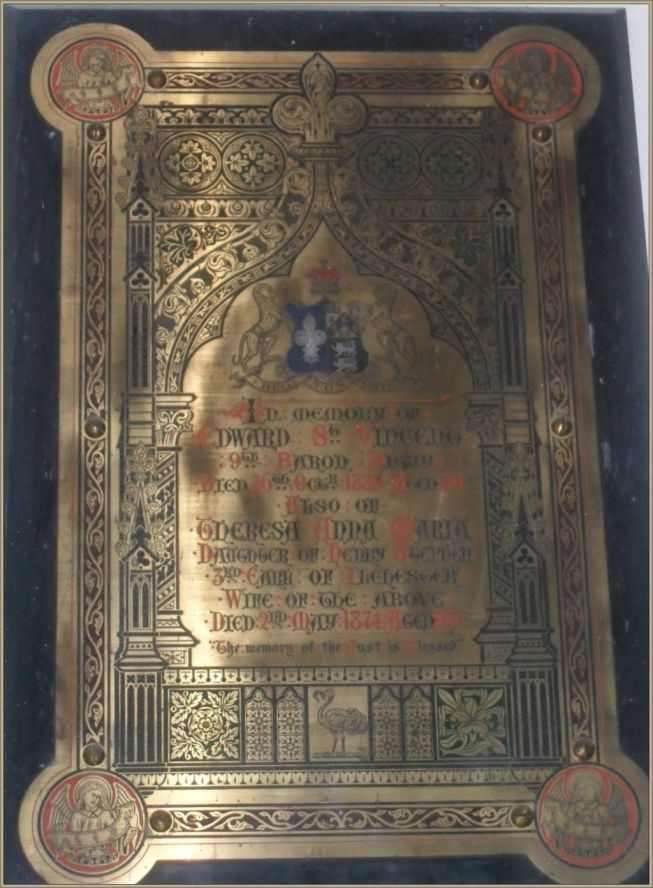 DEO NON FORTUNA
·IN: MEMORY OF·
EDWARD: ST: VINCENT·
·9TH: BARON: DIGBY·
·DIED 16TH: OCTR: 1889: AGED 80·
·ALSO: OF·
·THERESA: ANNA: MARIA·
·DAUGHTER: OF: HENRY: STEPHEN·
·3RD: EARL: OF: ILCHESTER·
·WIFE: OF: THE: ABOVE·
·DIED: 2ND: MAY: 1874: AGED 60·
"The: memory: of: the: Just: is: Blessed"